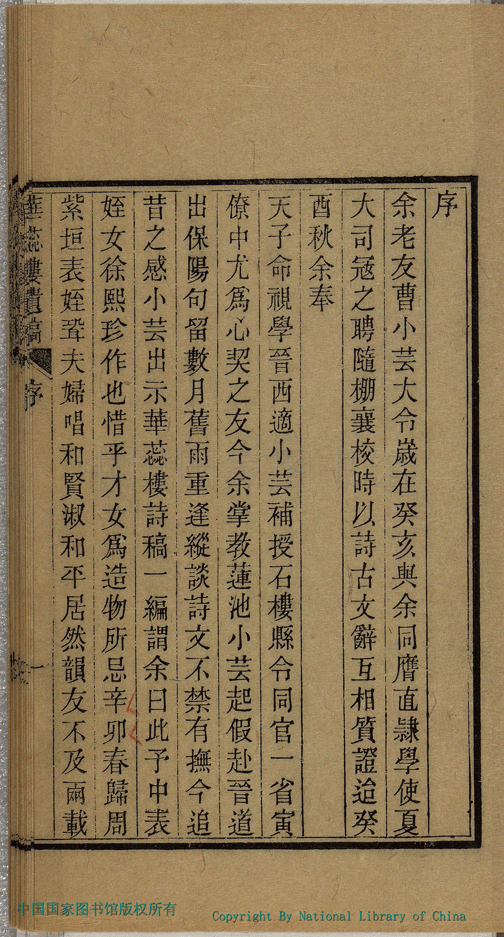 序
余老友曹小芸大令歲在癸亥與余同膺直隷學使夏
大司冦之聘隨棚襄校時以詩古文辭互相質證迨癸
酉秋余奉
天子命視學晉西適小芸補授石樓縣令同官一省寅
僚中尤爲心契之友今余掌教蓮池小芸起假赴晉道
出保陽句留數月舊雨重逢縱談詩文不禁有撫今追
昔之感小芸出示華蕊樓詩稿一編謂余曰此予中表
姪女徐熙珍作也惜乎才女爲造物所忌辛卯春歸周
紫垣表姪鞏夫婦唱和賢淑和平居然韻友不及兩載
華蕊樓遺稿 序 一
中国国家图书馆版权所有
Copyright By National Library of China